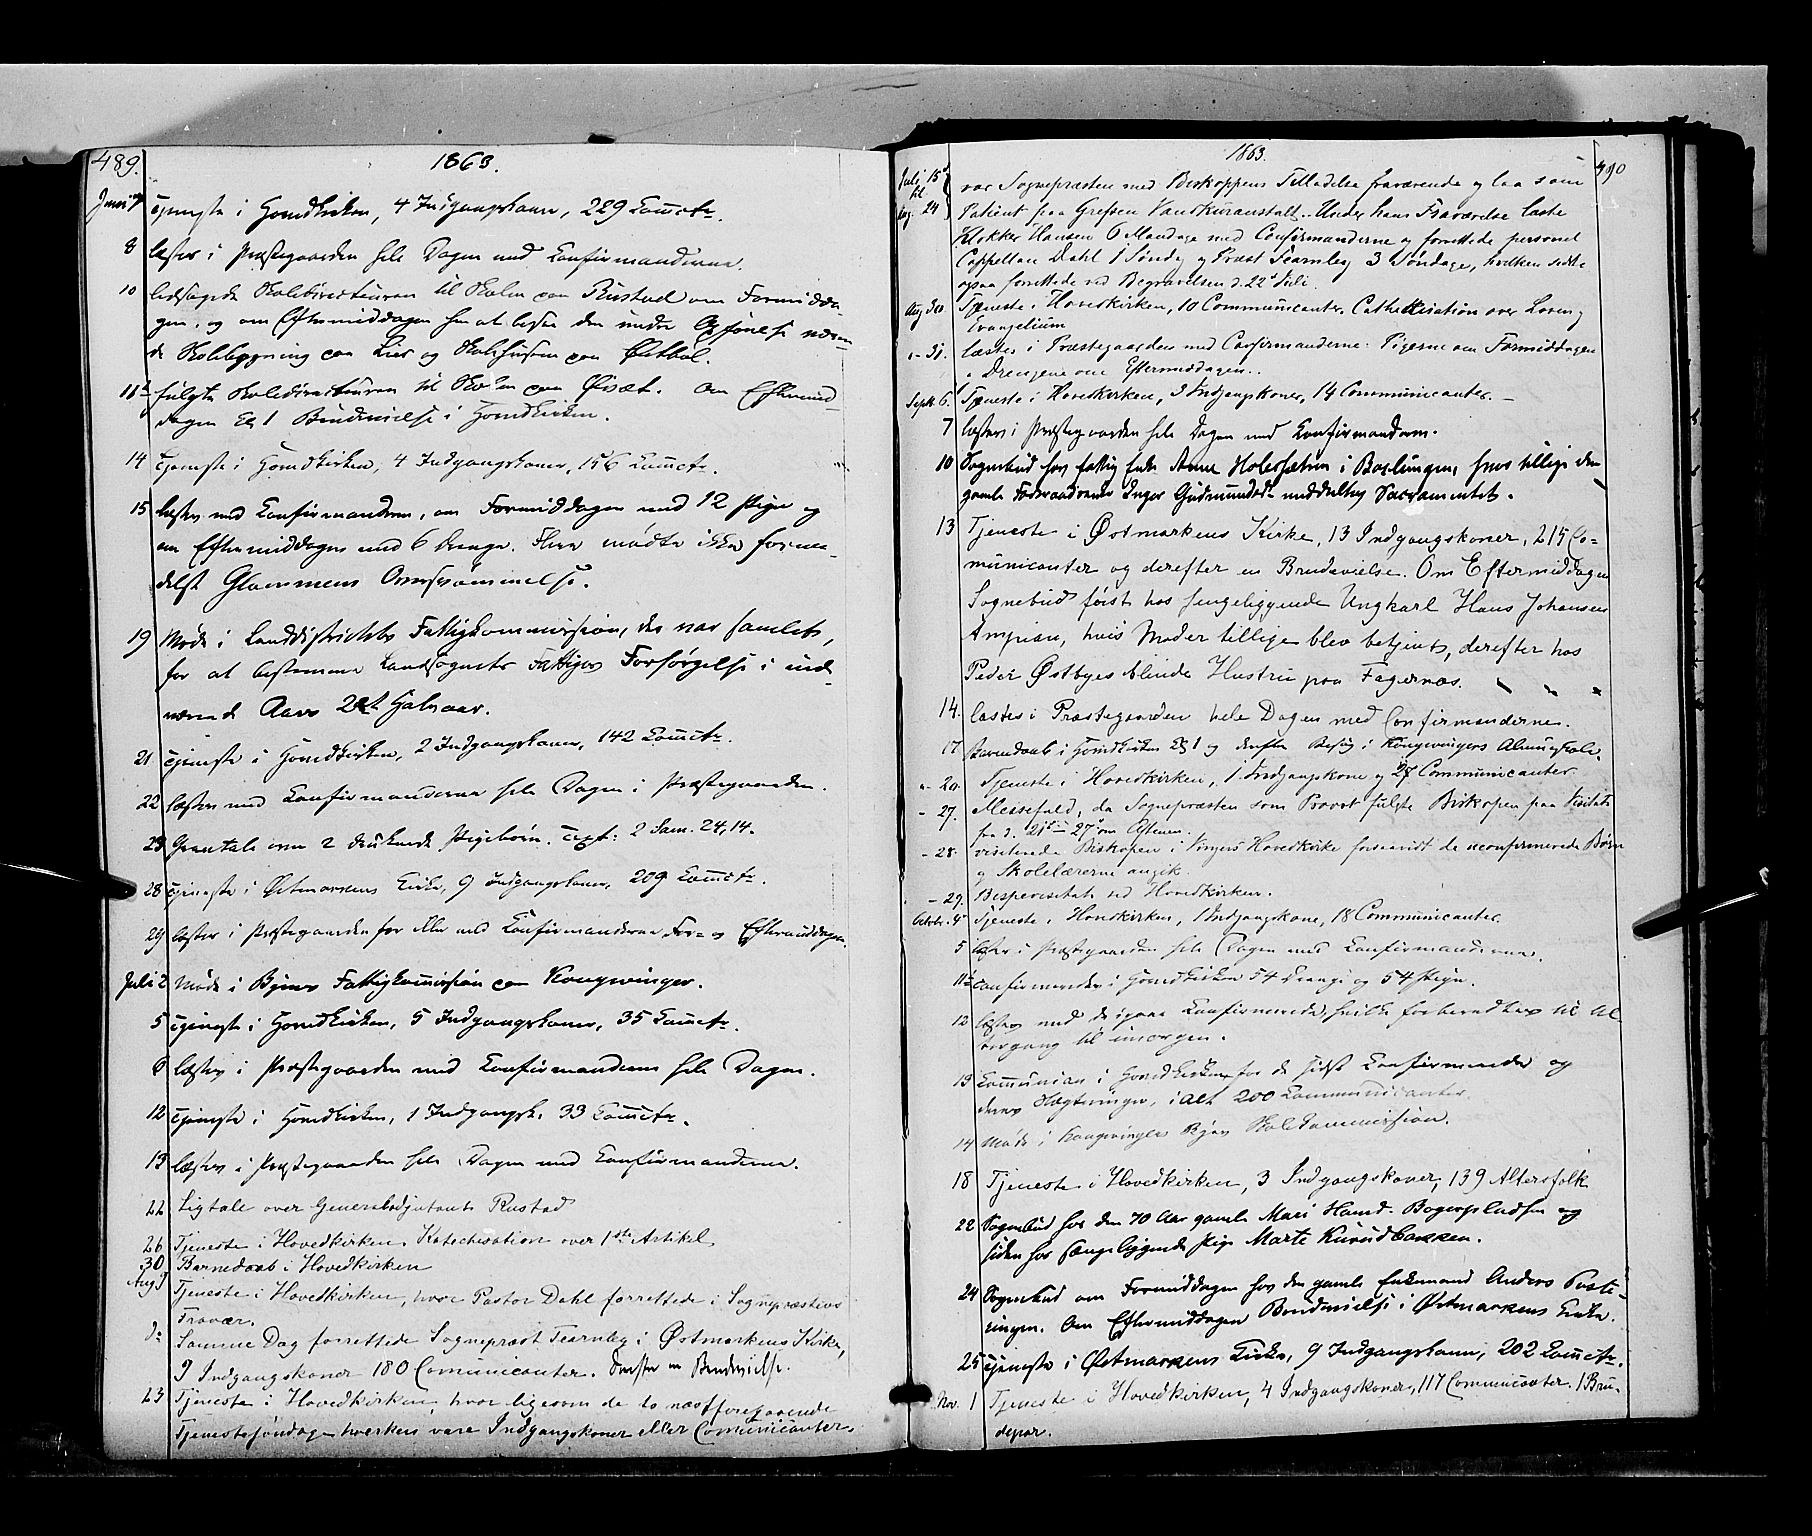 489. 1863.
Juni 7 Tjeneste i Hovedkirken, 4 Indgangskoner, 229 Commctr.
8 læstes i Præstegaarden hele Dagen med Confirmanderne.
10 ledsagede Skoledirecteuren til Skolen paa Rustad om Formidda-
gen, og om Eftermiddagen hen at besee den under Opførelse væren-
de Skolebygning paa Lier og Skolehuset paa
11te fulgte Skoledirecteuren til Skolen paa Om Eftermid-
dagen Kl 1 Brudevielse i Hovedkirken.
14 Tjeneste i Hovedkirken, 4 Indgangskoner, 156 Commctr.
15 læstes med Confirmanderne, om Formiddagen med 12 Piger og
om Eftermiddagen med 6 Drenge. Flere mødte ikke forme-
delst Glommens Oversvømmelse.
19 Møde i Landdistrictets Fattigkommission, der var samlet,
for at bestemme Landsognets Fattiges Forsørgelse i ind-
værende Aars 2det Halvaar.
21 Tjeneste i Hovedkirken, 2 Indgangskoner, 142 Commctr.
22 læstes med Confirmanderne hele Dagen i Præstegaarden.
23 Gravtale over 2 druknede Pigebørn. Text: 2 Sam. 24,14.
28 Tjeneste i Østmarkens Kirke, 9 Indgangskoner, 209 Commctr.
29 læstes i Præstegaarden for Alle med Confirmanderne For- og Eftermiddagen.
Juli 2 Møde i Byens Fattigkommission paa Kongsvinger.
5 Tjeneste i Hovedkirken, 5 Indgangskoner, 35 Commctr.
6 læstes i Præstegaarden med Confirmanderne hele Dagen.
12 Tjeneste i Hovedkirken, 1 Indgangsk. 33 Commctr.
13 læstes i Præstegaarden hele Dagen med Confirmanderne.
22 Ligtale over Generaladjutant Rustad
26 Tjeneste i Hovedkirken. Katechisation over 1ste Artikel
30 Barnedaab i Hovedkirken
Aug 9 Tjeneste i Hovedkirken, hvor Pastor Dahl forrettede i Sognepræstens
Fravær.
do Samme Dag forrettede Sogneprest Fearnley i Østmarkens Kirke,
9 Indgangskoner 180 Comunicanter. Derefter en Brudevielse.
23 Tjeneste i Hovedkirken, hvor ligesom de to næstforegaaende
Tjenestesøndage hverken vare Indgangskoner eller Comunicanter.
1863. 490
Juli 15d
til
Aug. 24 var Sognepræsten med Biskoppens Tilladelse fraværende og laa som
Patient paa Grefsen Vandkuranstalt. Under hans Fraværelse læste
Klokker Hansen 6 Mandage med Confirmanderne og forrettede personel
Cappellan Dahl 1 Søndag og Præst Fearnley 3 Søndage, hvilken sidste
ogsaa forrettede ved Begravelsen d. 22de Juli.
Aug 30 Tjeneste i Hovedkirken, 10 Communicanter. Cathekisation over Loven og
Evangelium
" - 31. læstes i Præstegaarden med Confirmanderne: Pigerne om Formiddagen
og Drengene om Eftermiddagen.
Sept. 6. Tjeneste i Hovedkirken, 3 Indgangskoner, 14 Communicanter. -
7 læstes i Præstegaarden hele Dagen med Confirmanderne.
10 Sognebud hos fattig Enke Anne i hvor tillige den
gamle Inger Gudmundsdtr meddeltes Sacramentet.
13 Tjeneste i Østmarkens Kirke, 13 Indgangskoner, 215 Co-
municanter og derefter en Brudevielse. Om Eftermiddagen
Sognebud først hos sengeliggende Ungkarl Hans Johansen
Ampian, hvis Moder tillige blev betjent, derefter hos
Peder Østbyes blinde Hustru paa Fagernæs.
14. læstes i Præstegaarden hele Dagen med Confirmanderne.
17 Barnedaab i Hovedkirken Kl 1 og derefter Besøg i Kongsvingers Almueskole.
" - 20. Tjeneste i Hovedkirken, 1 Indgangskone og 28 Communicanter
- 27. Messefald, da Sognepræsten som Provst fulgte Biskopen paa Visitats
fra d. 21de - 27de om Aftenen.
- 28. visiterede Biskopen i Vingers Hovedkirke forsaavidt de uconfirmerede Børn
og Skolelærerne angik
- 29. Bispevisitats ved Hovedkirken.
Octobr. 4 Tjeneste i Hovedkirken, 1 Indgangskone, 18 Communicanter
5 læstes i Præstegaarden hele Dagen med Confirmanderne.
11te confirmeredes i Hovedkirken 54 Drenge og 54 Piger.
12 læstes med de igaar Confirmerede, hvilke forberedtes til Al-
tergang til imorgen.
13 Communion i Hovedkirken for de sidst Confirmerede og
deres Slægtninge, ialt 200 Communicanter.
14 Møde i Kongsvingers Byes Skolekommission.
18 Tjeneste i Hovedkirken, 3 Indgangskoner, 139 Altersfolk
22 Sognebud hos den 70 Aar gamle Mari og
siden hos sengeliggende Pige Marte
24 Sognebud om Formiddagen hos den gamle Enkemand Anders Poste-
ringen. Om Eftermiddagen Brudevielse i Østmarkens Kirke.
25 Tjeneste i Østmarkens Kirke, 9 Indgangskoner, 202 Commctr.
Nov. 1 Tjeneste i Hovedkirken, 4 Indgangskoner, 117 Communicanter. 1 Bru-
depar.